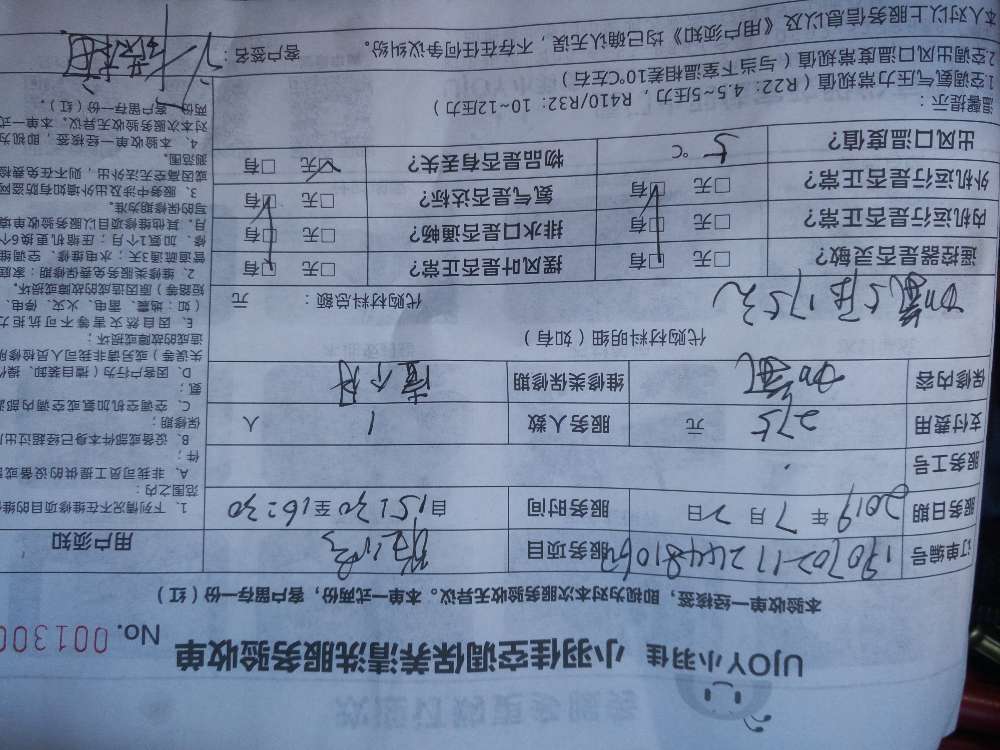 UJOY小羽佳 小羽佳空调保养清洗服务验收单 No. 001300
本验收单一经核签，即视为对本次服务验收无异议。本单一式两份，客户留存一份（红）
订单编号 服务项目 用户须知
服务日期 2019 年 7 月 2 日 服务时间 自 15:30 至 16:30
服务工号
支付费用 275 元 服务人数 1 人
保修内容 加氟 维修类保修期 壹个月
代购材料明细（如有）
代购材料总额： 元
遥控器是否灵敏？ □无 □有 摆风叶是否正常？ □无 □有
内机运行是否正常？ □无 □有 排水口是否通畅？ □无 □有
外机运行是否正常？ □无 □有 氨气是否达标？ □无 □有
出风口温度值？ 5 ℃ 物品是否有丢失？ □无 □有
温馨提示：
1空调氨气压力常规值（R22：4.5~5压力，R410/R32：10~12压力）
2空调出风口温度常规值（与当下室温相差10℃左右）
本人对以上服务信息以及《用户须知》均已确认无误，不存在任何争议纠纷。
客户签名：
1、下列情况不在维修项目的维
范围之内：
A、非我司员工提供的设备或
件；
B、设备或部件本身已经超过出厂
保修期；
C、空调空机加氨或空调内部
氨；
D、因客户行为（擅自装卸、操作
失误等）或另请非我司人员检修所
造成的故障或损坏；
E、因自然灾害等不可抗拒力
（如：地震、雷电、火灾、停电、
短路等）原因造成的故障或损坏。
2、维修类服务免费保修期：家庭
管道疏通3天；水电维修、空调维
修、加氨1个月；压缩机更换6个
月、其他维修项目以服务验收单填
写的保修期为准。
3、服务中涉及出外墙如有防盗网
或因高空无法外出，则不在免费检
测范围。
4、本验收单一经核签，即视为
对本次服务验收无异议。本单一式
两份，客户留存一份（红）。